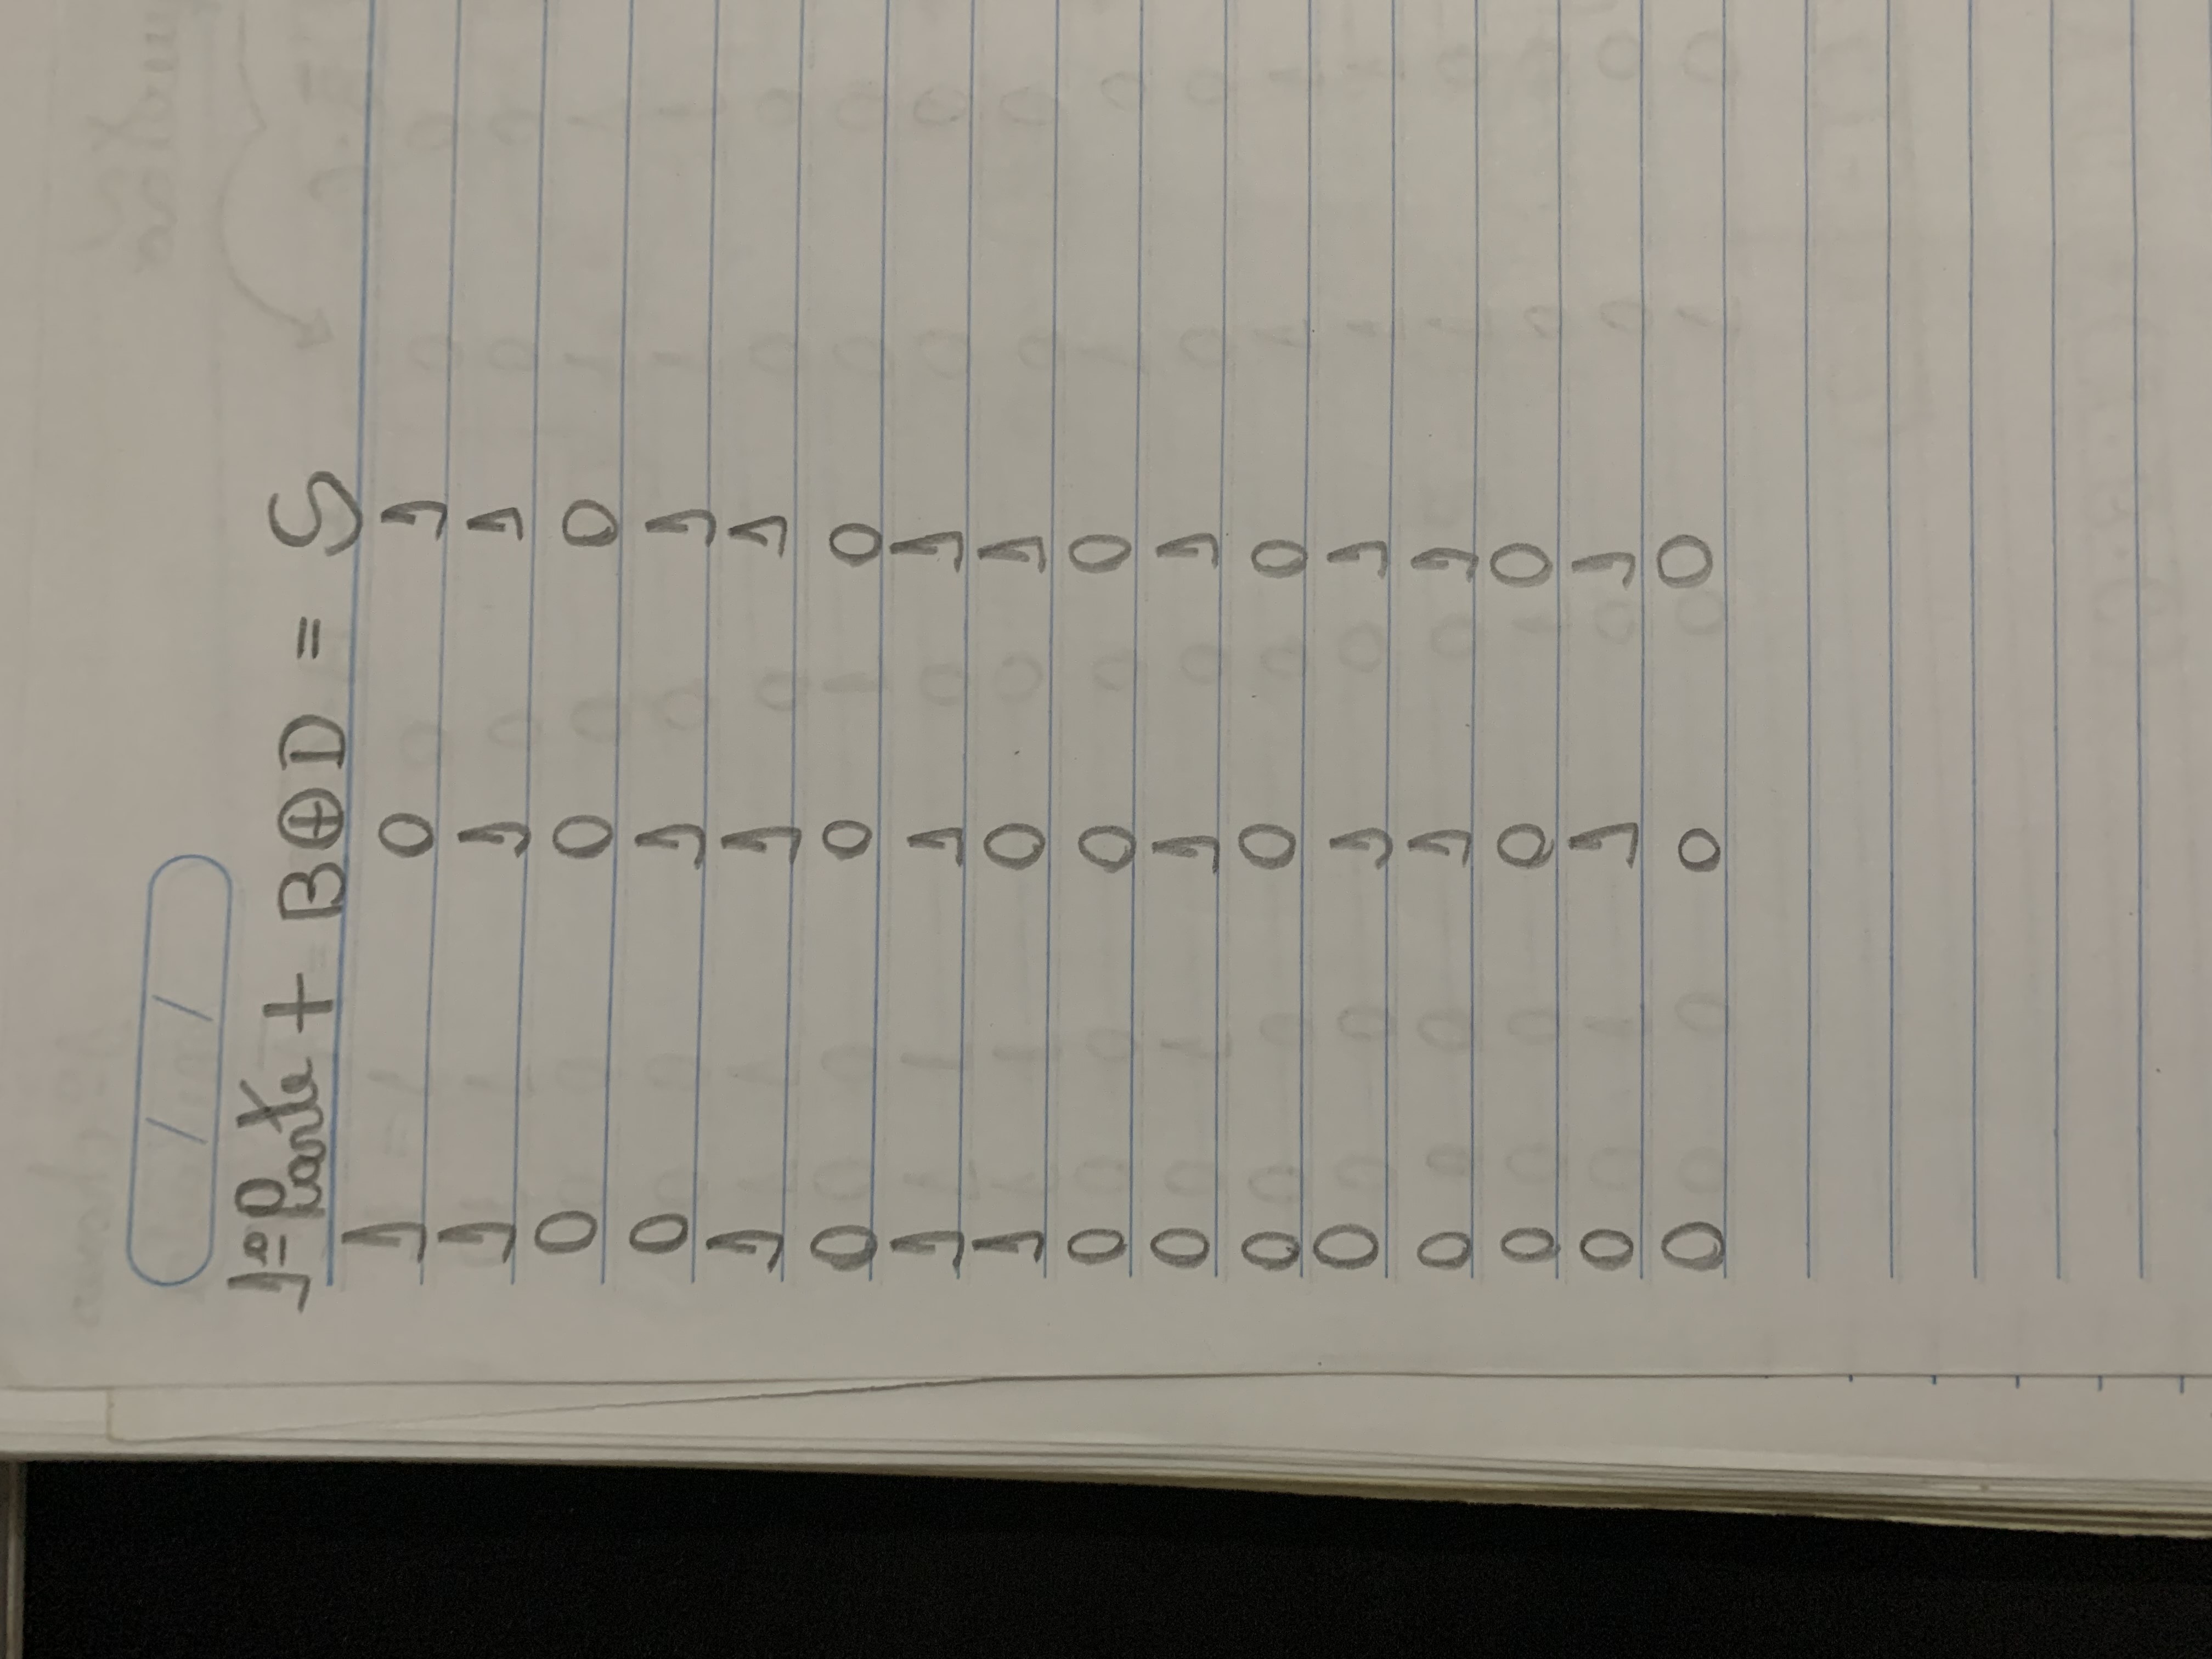 / /
1º Parte + B⊕D = S
1 0 1
1 1 1
0 0 0
0 1 1
1 1 1
0 0 0
1 1 1
1 0 1
0 0 0
0 1 1
0 0 0
0 1 1
0 1 1
0 0 0
0 1 1
0 0 0